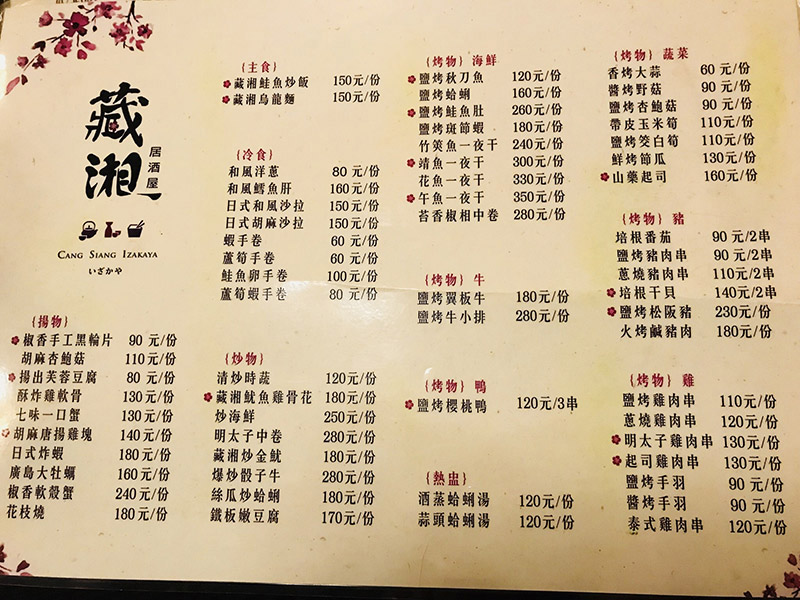 藏湘
居酒屋
CANG SIANG IZAKAYA
いざかや
{揚物}
椒香手工黑輪片 90 元/份
胡麻杏鮑菇 110元/份
揚出芙蓉豆腐 80 元/份
酥炸雞軟骨 130元/份
七味一口蟹 130元/份
胡麻唐揚雞塊 140元/份
日式炸蝦 180元/份
廣島大牡蠣 160元/份
椒香軟殼蟹 240元/份
花枝燒 180元/份
{主食}
藏湘鮭魚炒飯 150元/份
藏湘烏龍麵 150元/份
{冷食}
和風洋蔥 80 元/份
和風鱈魚肝 160元/份
日式和風沙拉 150元/份
日式胡麻沙拉 150元/份
蝦手卷 60 元/份
蘆筍手卷 60 元/份
鮭魚卵手卷 100元/份
蘆筍蝦手卷 80 元/份
{炒物}
清炒時蔬 120元/份
藏湘魷魚雞骨花 180元/份
炒海鮮 250元/份
明太子中卷 280元/份
藏湘炒金魷 180元/份
爆炒骰子牛 280元/份
絲瓜炒蛤蜊 180元/份
鐵板嫩豆腐 170元/份
{烤物} 海鮮
鹽烤秋刀魚 120元/份
鹽烤蛤蜊 160元/份
鹽烤鮭魚肚 260元/份
鹽烤斑節蝦 180元/份
竹筴魚一夜干 240元/份
鯖魚一夜干 300元/份
花魚一夜干 330元/份
午魚一夜干 350元/份
苔香椒相中卷 280元/份
{烤物} 牛
鹽烤翼板牛 180元/份
鹽烤牛小排 280元/份
{烤物} 鴨
鹽烤櫻桃鴨 120元/3串
{熱盅}
酒蒸蛤蜊湯 120元/份
蒜頭蛤蜊湯 120元/份
{烤物} 蔬菜
香烤大蒜 60 元/份
醬烤野菇 90 元/份
鹽烤杏鮑菇 90 元/份
帶皮玉米筍 110元/份
鹽烤茭白筍 110元/份
鮮烤節瓜 130元/份
山藥起司 160元/份
{烤物} 豬
培根番茄 90 元/2串
鹽烤豬肉串 90 元/2串
蔥燒豬肉串 110元/2串
培根干貝 140元/2串
鹽烤松阪豬 230元/份
火烤鹹豬肉 180元/份
{烤物} 雞
鹽烤雞肉串 110元/份
蔥燒雞肉串 120元/份
明太子雞肉串 130元/份
起司雞肉串 130元/份
鹽烤手羽 90 元/份
醬烤手羽 90 元/份
泰式雞肉串 120元/份